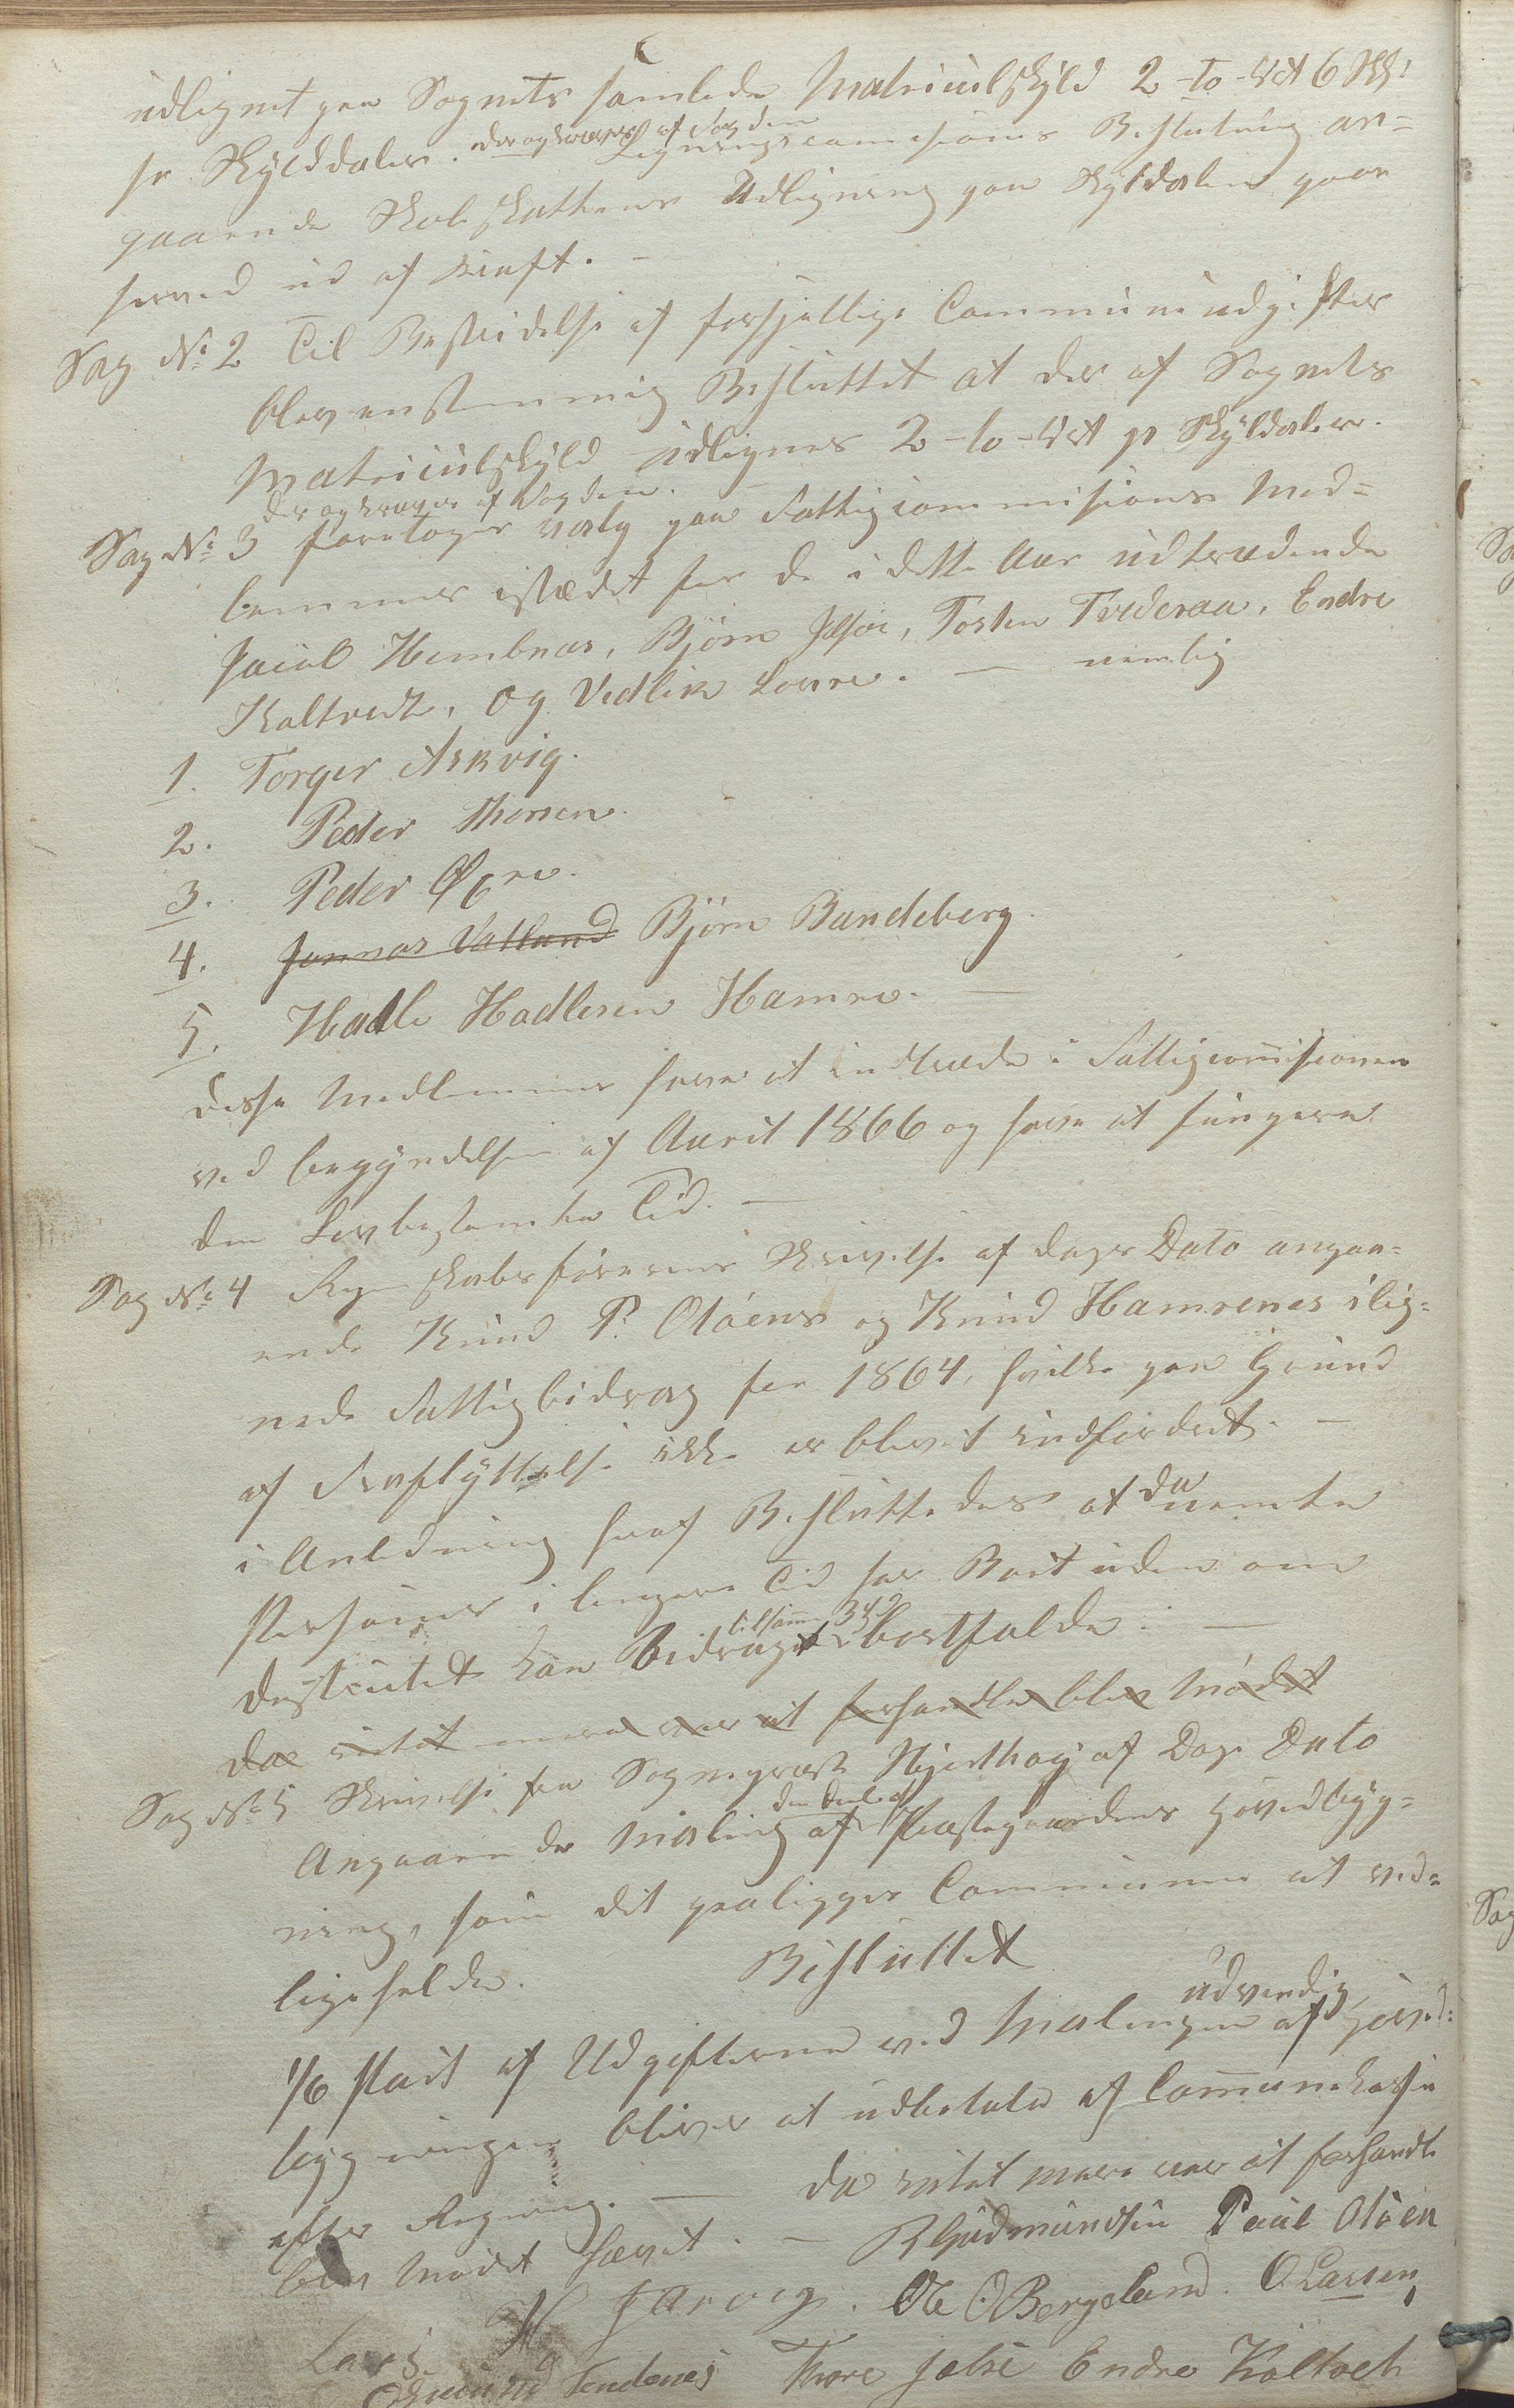 udlignet paa Sognets samlede Matriculskyld 2 -to- Ort 6 Skl:
pr Skylddaler. der opkræves af Fogden
Ligningscomisions Beslutning an=
gaaende Skoleskattens Udligning paa Skyldaleren gaar
herved ud af Kraft. -
Sag No 2 Til Bestridelse af forskjellige Communeudgifter
blev enstemmig Besluttet at der af Sognets
Matriculskyld udlignes 2 -to- Ort pr Skyldaler.
der opkræves af Fogden.
Sag No 3 foretoges valg paa Fattigcommisions Med=
lemmer istædet for de i dette Aar udtrædende
Jacob Hembnas, Bjørn Jelsøe, Tosten Tvederaa, Endre
Koltvedt, og Vedlik Lovre. - nemlig
1. Torger Askvig.
2. Peder Thorsen.
3. Peder Øvre.
4. Jonnas Vatland Bjørn Bandeberg.
5. Hadle Hadlesen Hamre. -
Disse Medlemmer have at indtræde i Fattigcomisionen
ved begyndelsen af Aaret 1866 og have at fungere
den Lovbestemte Tid. -
Sag No 4 Regnskabsførerens Skrivelse af dags Dato angaa=
ende Knud P. Oløens og Knud Hamrenes ilig=
nede Fattigbidrag for 1864, hvilke paa Grund
af Fraflyttelse ikke er blevet indfordret. -
i Anledning heraf Besluttedes at da nemte
Personer i længere Tid har Boet uden om
Destrictet kan Bidraget tilsam 342 bortfalde. -
Da intet mere var at forhandle blev Mødet
Sag No 5 Skrivelse fra Sognepræst Hjorthøg af Dags Dato
Angaaende Maling af den deel af Præstegaardens Hovedbyg=
ning, som det paaligger Communen at ved=
ligeholde. Besluttet
1/6 Part af Udgifterne ved Malingen udvendig af Hoved=
bygningen bliver at udbetale af Communekassen
efter Regning. - Da intet mere var at forhandle
blev Mødet hævet. - R Gudmundsen Paul Oløen
H Jarvig. Ole O Bergeland. O Larsen,
Lars
Tendenes Thore Jelse Endre Koltvet